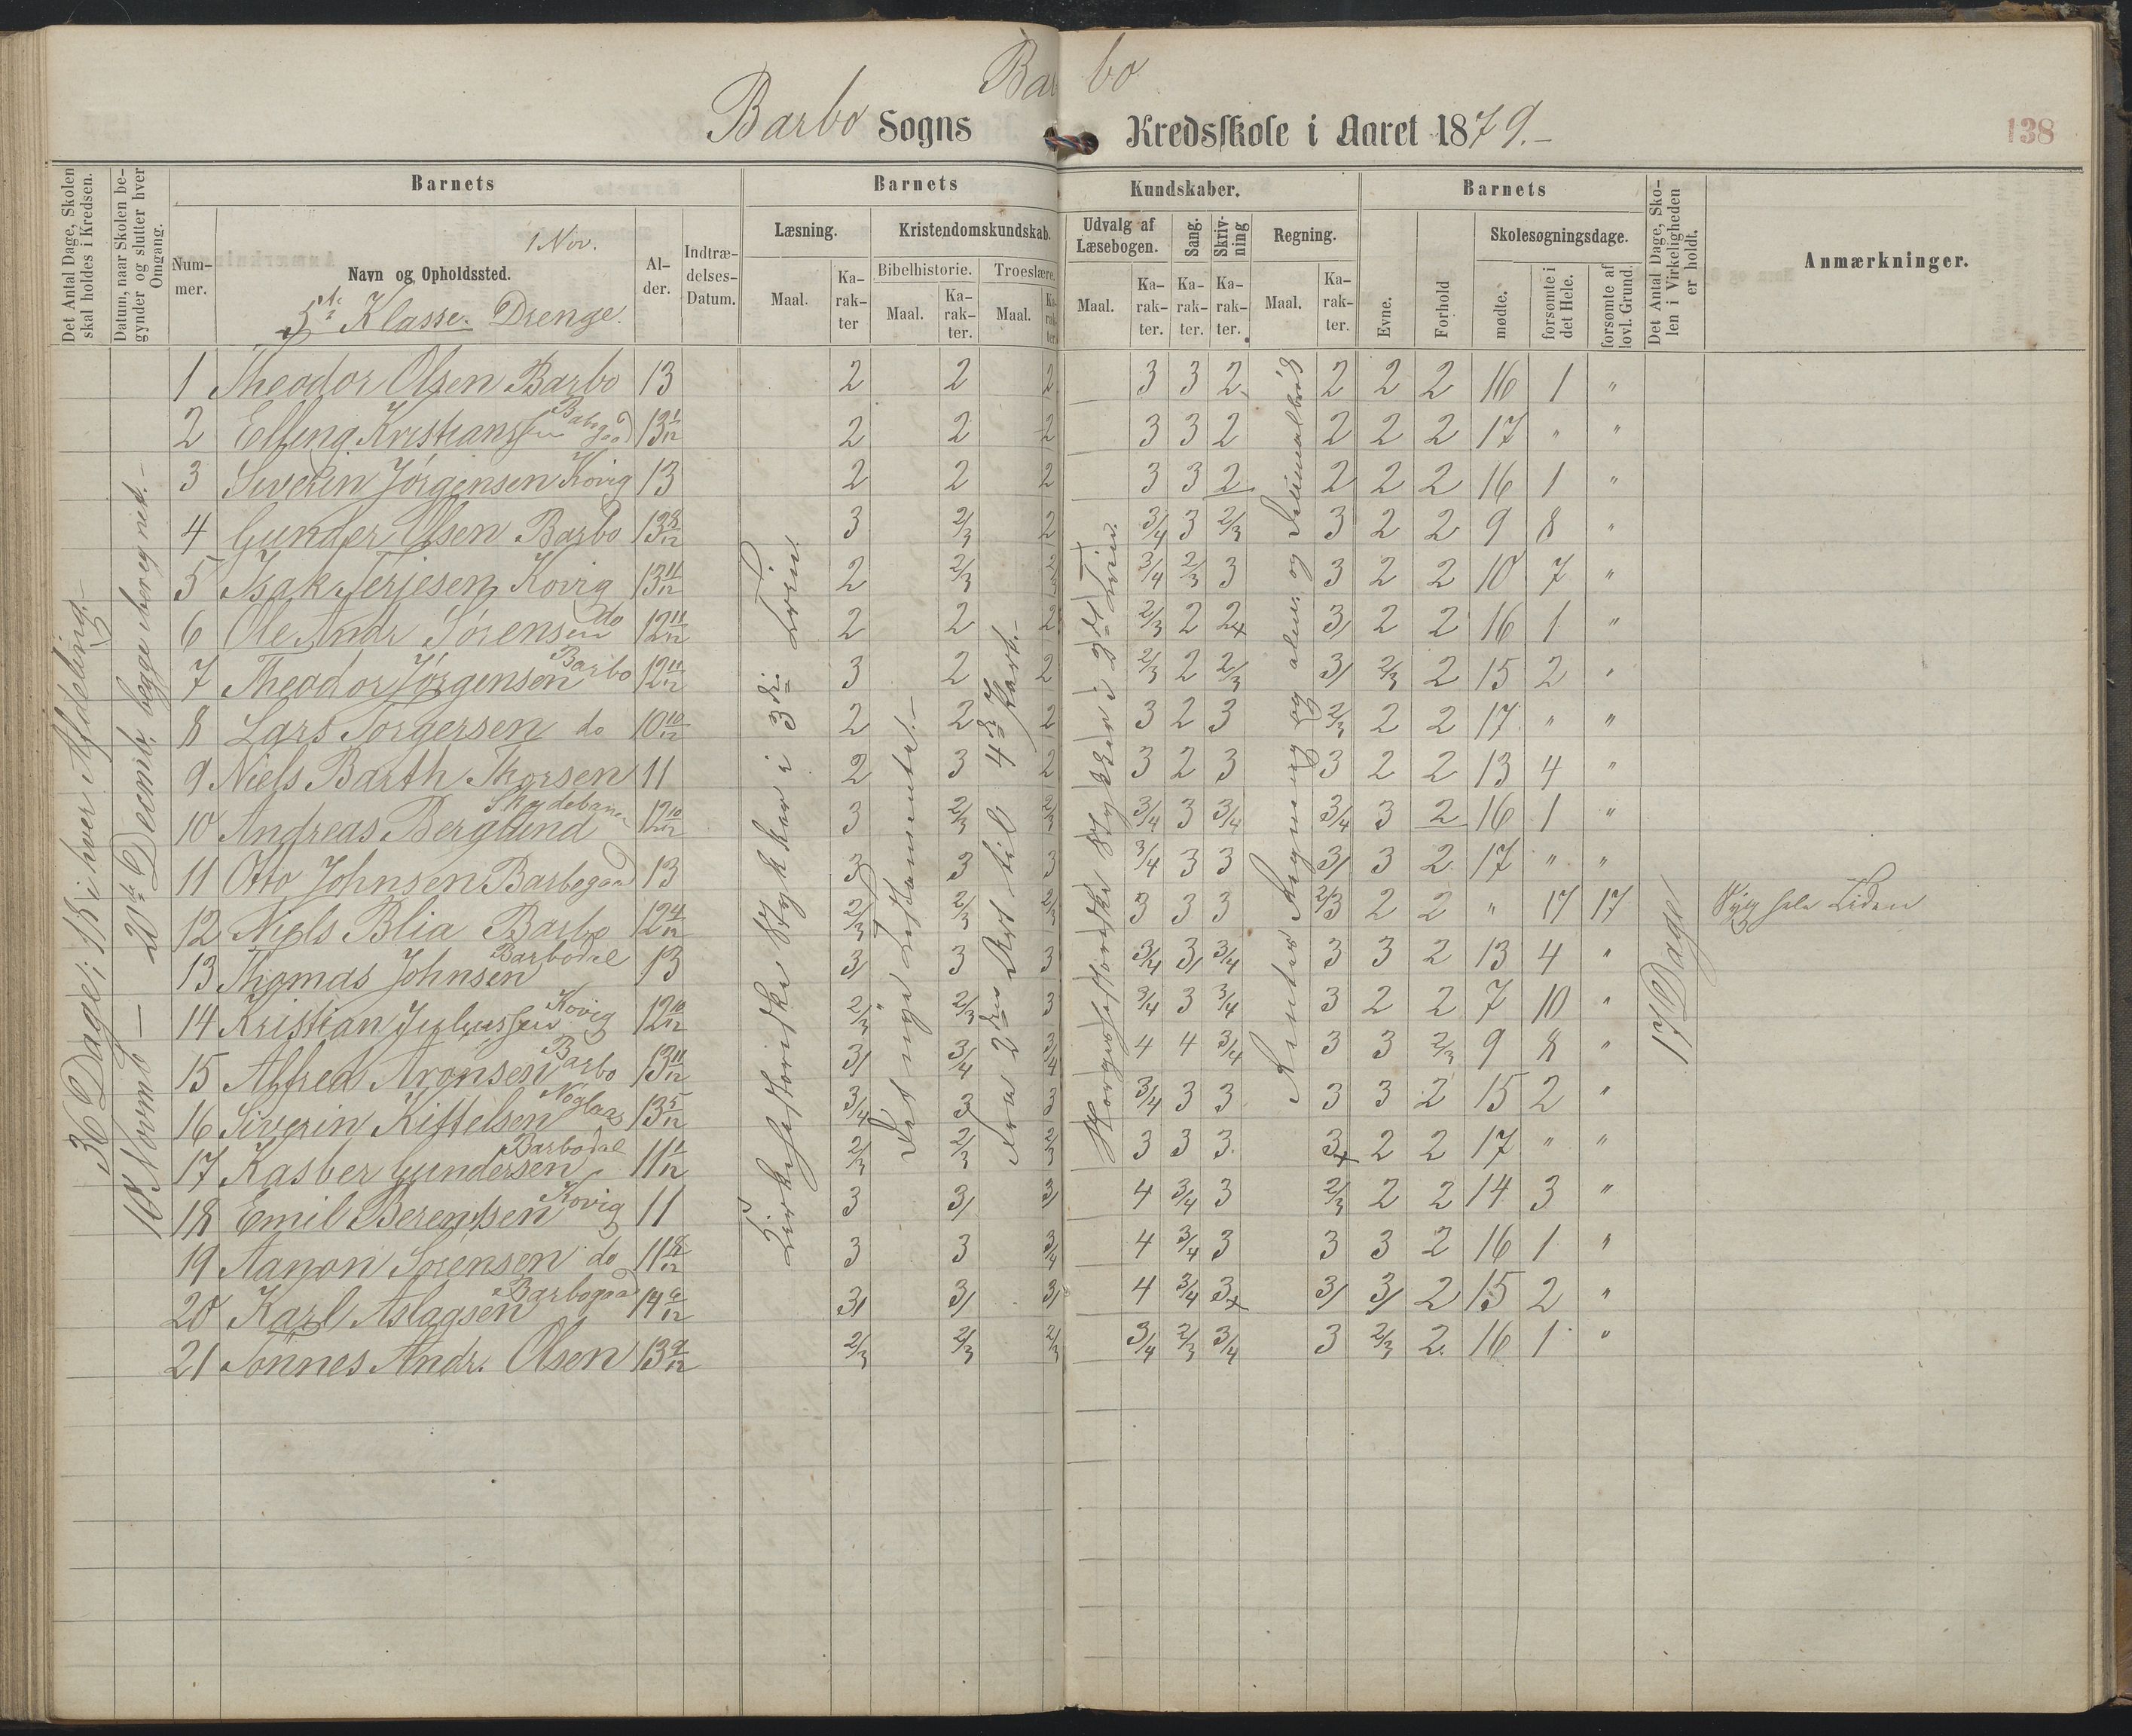 Bar bo
Barbo Sogns Kredsskole i Aaret 1879.-
138
Det Antal Dage, Skolen skal holdes i Kredsen.
Datum, naar Skolen begynder og slutter hver Omgang.
Barnets
Barnets
Kundskaber.
Barnets
Det Antal Dage, Skolen i Virkeligheden er holdt.
Anmærkninger.
Nummer.
1 Nov.
Navn og Opholdssted.
5te Klasse. Drenge.
Alder.
Indtrædelses-Datum.
Læsning.
Kristendomskundskab.
Udvalg af Læsebogen.
Sang.
Skrivning
Regning.
Evne.
Forhold
Skolesøgningsdage.
Bibelhistorie.
Troeslære.
Maal.
Karakter
Maal.
Karakter.
Maal.
Karakter.
Maal.
Karakter.
Karakter.
Karakter.
Maal.
Karakter.
mødte.
forsømte i det Hele.
forsømte af lovl. Grund.
36 Dage; 18 i hver Afdeling.-
10de Novemb — 20de Decemb, begge iberegnet.-
Kirkehistoriske Stykker i 3die Trin.
Det nye Testamente.-
Fra 2den Art. til 4de Part.-
Norgeshistoriske Stykker i 3die Trin.
Renter Regning og alm. og Decimalbrøk
17 Dage
1 Theodor Olsen Barbo 13 2 2 2 3 3 2 2 2 2 16 1 "
2 Elling Kristianssen Barbogaad 13 1/12 2 2 2 3 3 2 2 2 2 17 " "
3 Severin Jørgensen Kovig 13 2 2 2 3 3 2 2 2 2 16 1 "
4 Gunder Olsen Barbo 13 8/12 3 2/3 2 3/4 3 2/3 3 2 2 9 8 "
5 Isak Terjesen Kovig 13 11/12 2 2/3 2/3 3/4 2/3 3 3 2 2 10 7 "
6 Ole Andr Sørensen do 12 11/12 2 2 2 2/3 2 2+ 3/ 2 2 16 1 "
7 Theodor Jørgensen Barbo 12 11/12 3 2 2 2/3 2 2/3 3/ 2/3 2 15 2 "
8 Lars Torgersen do 10 10/12 2 2 2 3 2 3 2/3 2 2 17 " "
9 Niels Barth Thorsen 11 2 3 2 3 2 3 3 2 2 13 4 "
10 Andreas Berglund Skydebanen 12 10/12 3 2/3 2/3 3/4 3 3/4 3/4 3 2 16 1 "
11 Otto Johnsen Barbogaad 13 3 3 3 3/4 3 3 3/ 3 2 17 " "
12 Niels Blia Barbo 12 4/12 2/3 2/3 2/3 3 3 3 2/3 2 2 " 17 17 Syg hele Tiden
13 Thomas Johnsen Barbodal 13 3/ 3 3 3/4 3/ 3/4 3 3 2 13 4 "
14 Kristian Juliussen Kovig 12 10/12 2/3 2/3 3 3/4 3 3/4 3 2 2 7 10 "
15 Alfred Aronsen Barbo 13 11/12 3/ 3/4 3/4 4 4 3/4 3 3 2/3 9 8 "
16 Siverin Kittelsen Noglaas 13 5/12 3/4 3 3 3/4 3 3 3 3 2 15 2 "
17 Kasber Gundersen Barbodal 11 1/12 2/3 2/3 2/3 3 3 3 3+ 2 2 17 " "
18 Emil Berentsen Kovig 11 3 3/ 3/ 4 3/4 3 2/3 2 2 14 3 "
19 Aanon Sørensen do 11 8/12 3 3 3/4 4 3/4 3 3 3 2 16 1 "
20 Karl Aslagsen Barbogaad 14 9/12 3/ 3/ 3/ 4 3/4 3+ 3/ 3/ 2 15 2 "
21 Tønnes Andr. Olsen 13 9/12 2/3 2/3 2/3 3/4 2/3 3/4 3 2/3 2 16 1 "